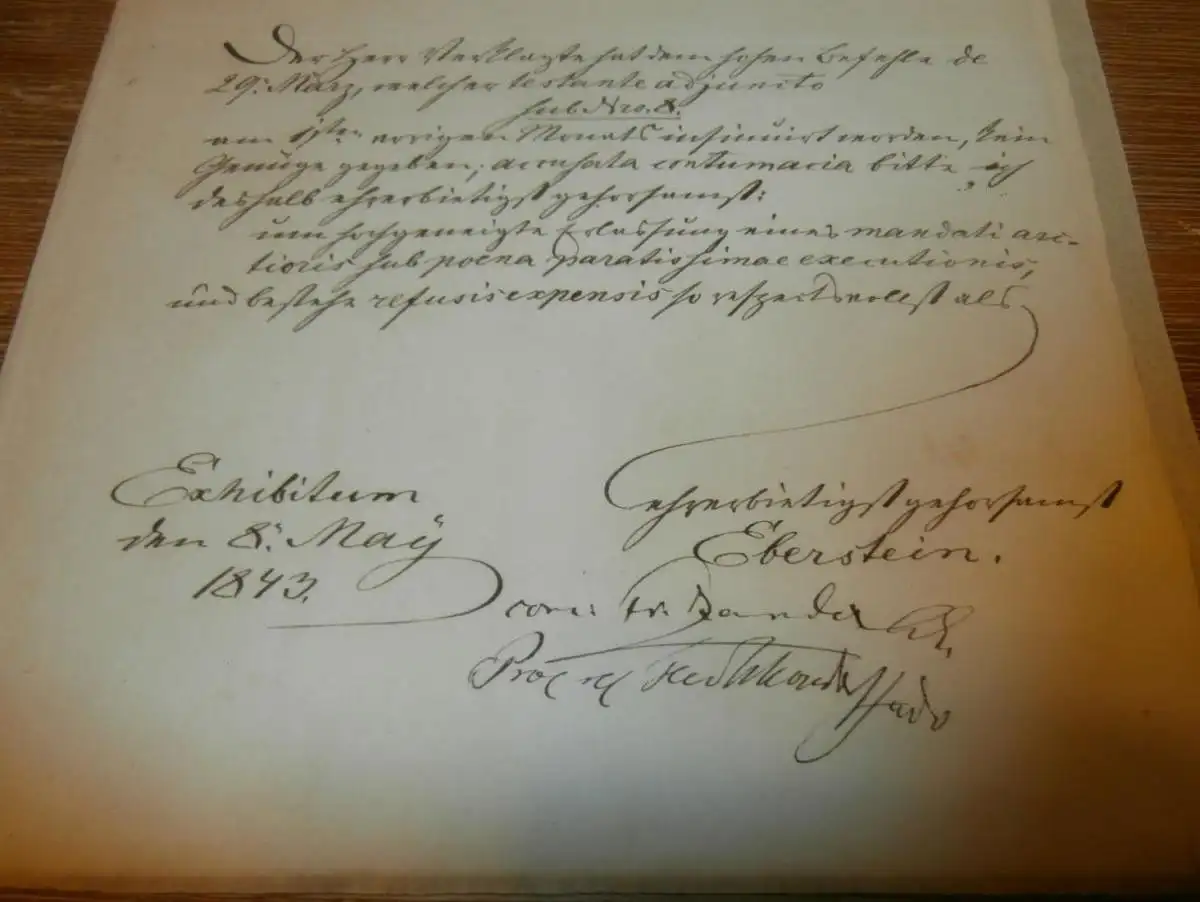 Der Herr Verklagte hat dem hohen Befehle de
29. März, welcher testante adjuncto
sub Nro. 8.
am 1sten vorigen Monats insinuirt worden, kein
Genüge gegeben; accusata contumacia bitte ich
deshalb ehrerbietigst gehorsamst:
um hochgeneigte Erlassung eines mandati arc-
tioris sub poena paratissimae executionis,
und bestehe refusis expensis so respectvollst als
Exhibitum
den 8. Maÿ
1843.
ehrerbietigst gehorsamst
Eberstein.